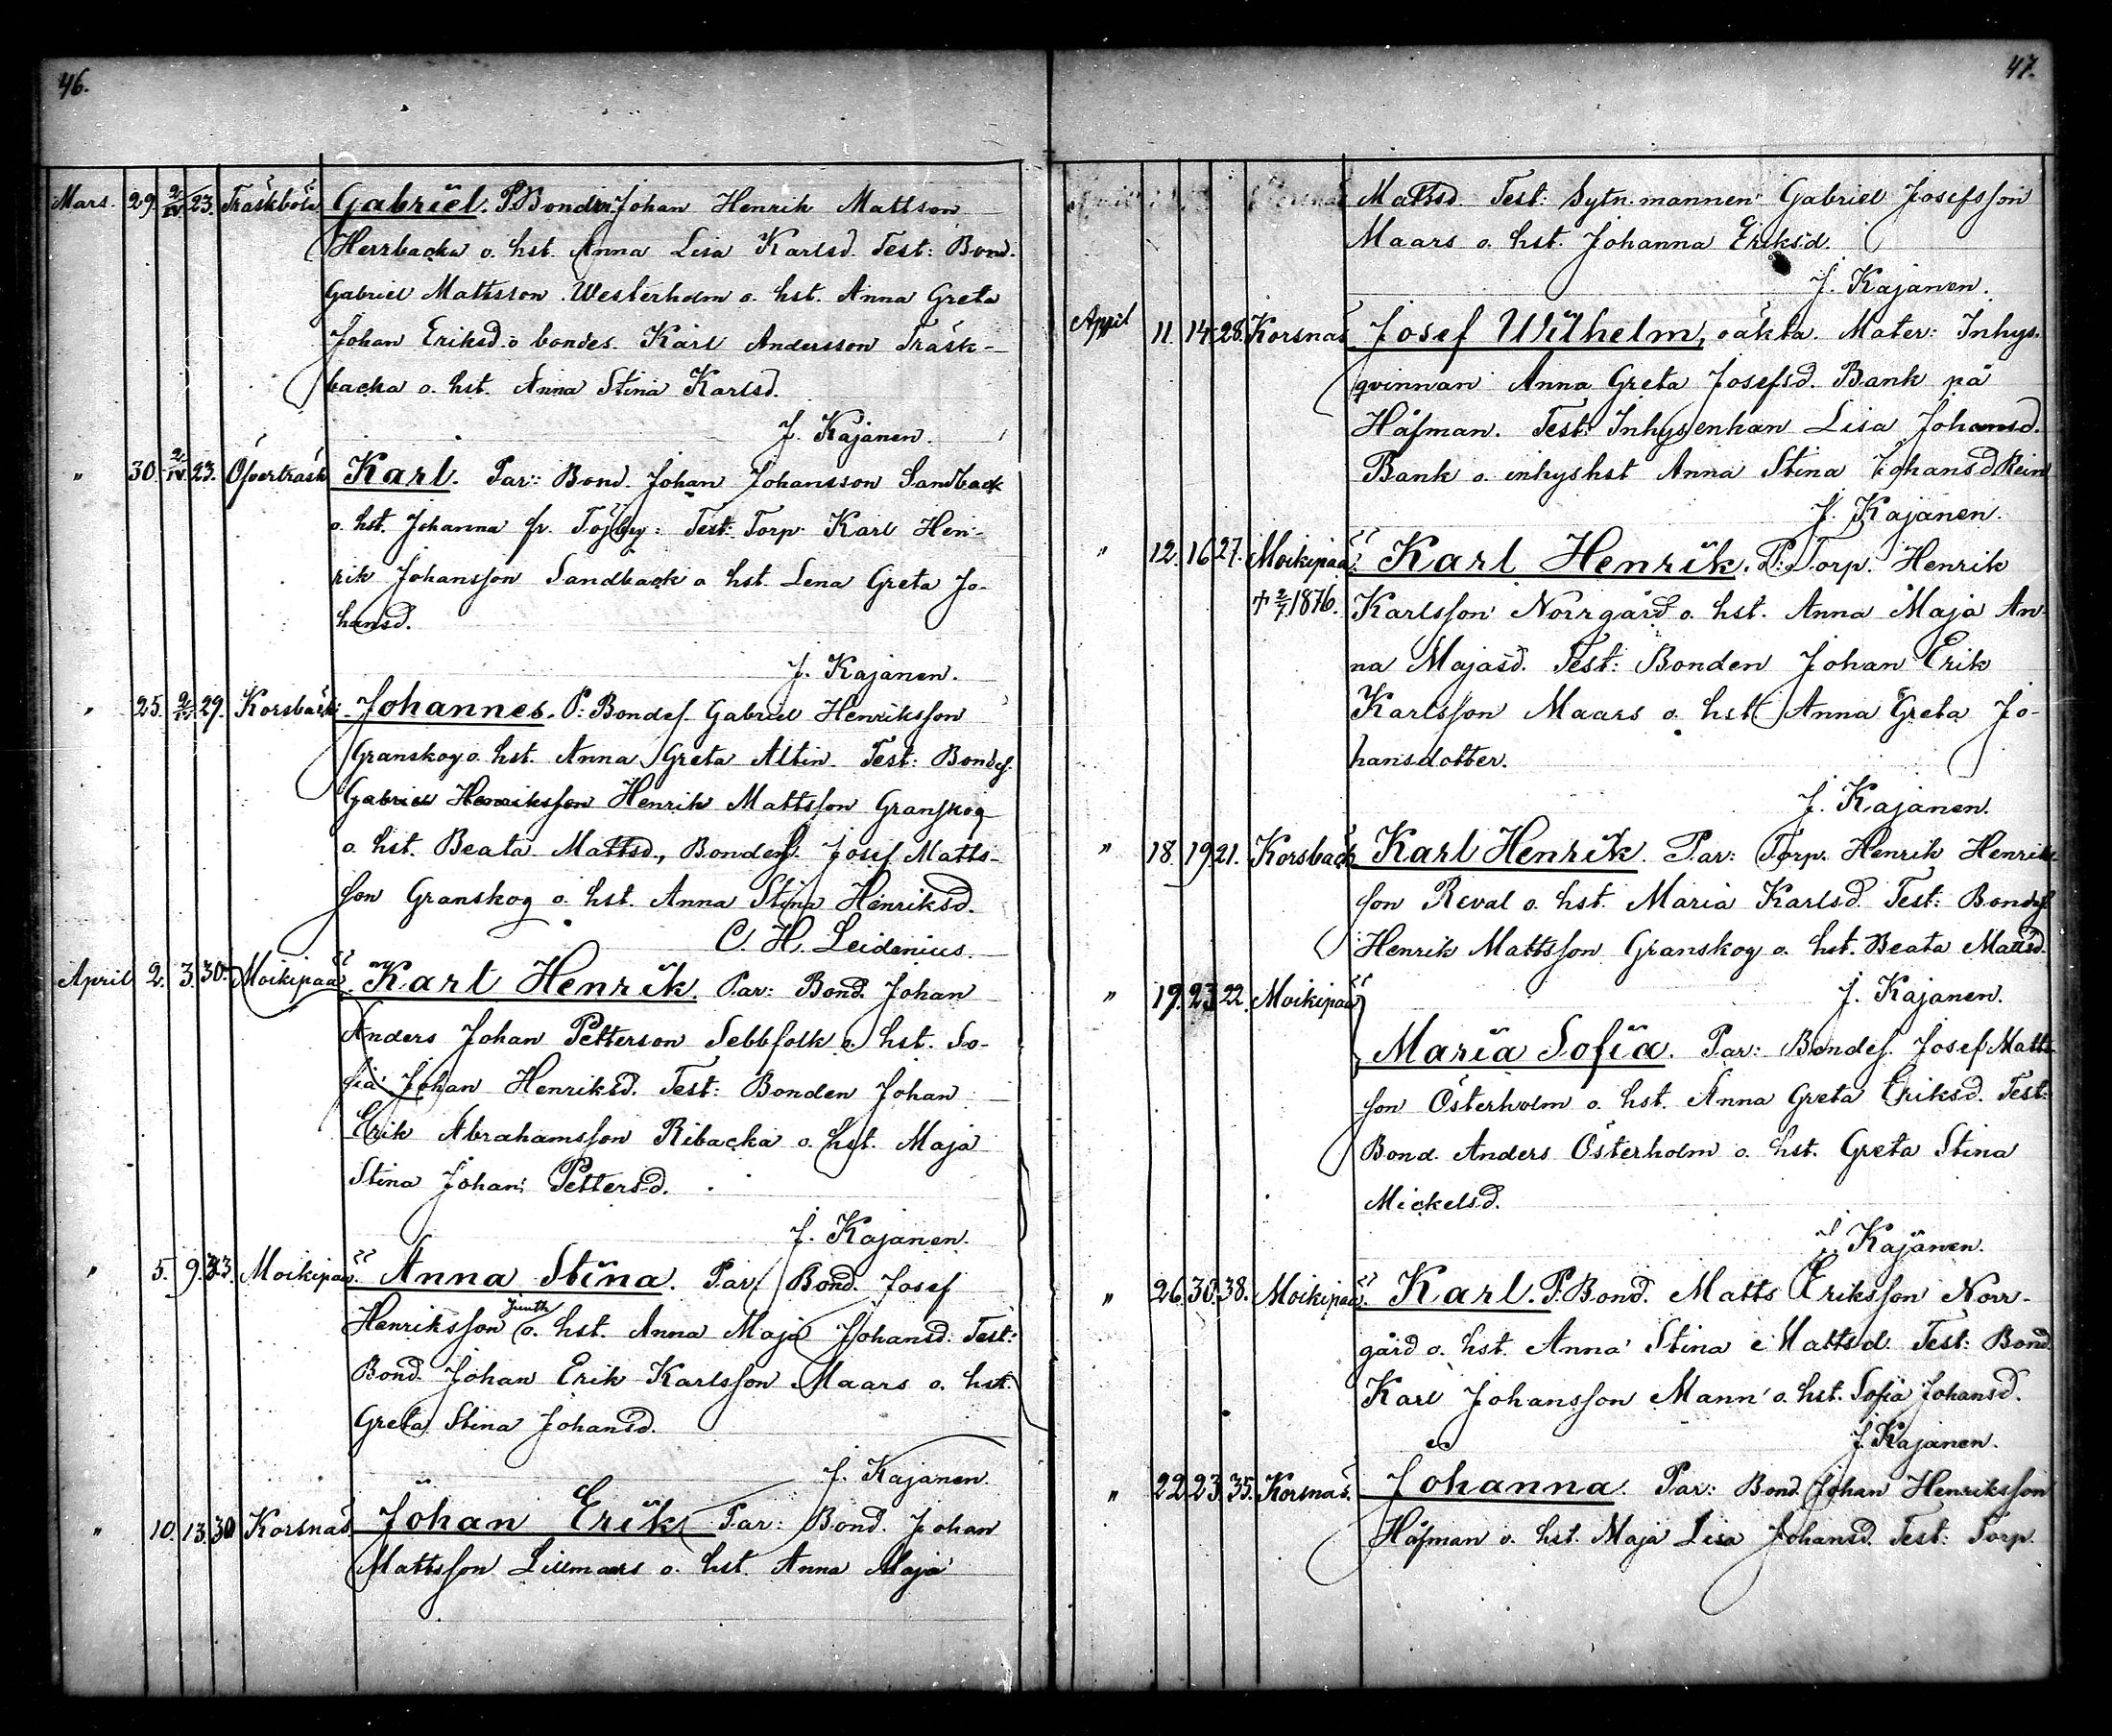 46.
Mars. 29 2/IV 23. Träskböle Gabriel. P. Bonden Johan Henrik Mattson
Herrbacka o. hst. Anna Lisa Karlsd. Test: Bond.
Gabriel Mattsson Westerholm o. hst. Anna Greta
Johan Eriksd. o bondes. Karl Andersson Träsk-
backa o. hst. Anna Stina Karlsd.
J. Kajanen.
" 30. 2/IV 23. Öfverträsk Karl. Par: Bond. Johan Johansson Sandback
o. hst. Johanna fr. Töjby: Test: Torp. Karl Hen-
rik Johansson Sandback o hst. Lena Greta Jo-
hansd.
J. Kajanen.
" 25. 2/IV 29. Korsbäck Johannes. P: Bondes. Gabriel Henriksson
Granskog o. hst. Anna Greta Altin. Test: Bondes.
Gabriel Henriksson Henrik Mattsson Granskog
o. hst. Beata Mattsd., Bondens. Josef Matts-
son Granskog o. hst. Anna Stina Henriksd.
C. H. Leidenius.
April 2. 3. 30. Moikipää Karl Henrik. Par: Bond. Johan
Anders Johan Petterson Sebbfolk o hst. So-
fia Johan Henriksd. Test: Bonden Johan
Erik Abrahamsson Ribacka o. hst. Maja
Stina Johan Pettersd.
J. Kajanen.
" 5. 9. 33. Moikipää. Anna Stina. Par: Bond. Josef
Henriksson Juuth o. hst. Anna Maja Johansd. Test:
Bond. Johan Erik Karlsson Maars o. hst.
Greta Stina Johansd.
J. Kajanen.
" 10. 13. 30 Korsnäs Johan Erik Par: Bond. Johan
Mattsson Lillmaars o. hst. Anna Maja
47.
Mattsd. Test: Sytn.mannen Gabriel Josefsson
Maars o. hst. Johanna Eriksd.
J. Kajanen.
April 11. 14. 28. Korsnäs Josef Wilhelm, oäkta. Mater: Inhys.
qvinnan Anna Greta Josefsd. Bank på
Håfman. Test: Inhysenkan Lisa Johansd.
Bank o. inhyshst Anna Stina Johansd Rein
J. Kajanen.
" 12. 16 27. Moikipää. Karl Henrik. P: Torp. Henrik
† 2/7 1876. Karlsson Norrgård o. hst. Anna Maja An-
na Majasd. Test: Bonden Johan Erik
Karlsson Maars o. hst Anna Greta Jo-
hansdotter.
J. Kajanen.
" 18. 19 21. Korsbäck Karl Henrik. Par: Torp. Henrik Henriks-
son Reval o. hst. Maria Karlsd. Test: Bondes.
Henrik Mattsson Granskog o. hst. Beata Mattsd.
J. Kajanen.
" 19. 23 22. Moikipää
Maria Sofia. Par: Bondes. Josef Matts-
son Österholm o. hst. Anna Greta Eriksd. Test:
Bond. Anders Österholm o. hst. Greta Stina
Mickelsd.
J. Kajanen.
" 26. 30. 38. Moikipää. Karl. P. Bond. Matts Eriksson Norr-
gård o. hst. Anna Stina Mattsd. Test: Bond.
Karl Johansson Mann o. hst. Sofia Johansd.
J. Kajanen.
" 22 23. 35. Korsnäs. Johanna. Par: Bond. Johan Henriksson
Håfman o. hst. Maja Lisa Johansd. Test: Torp.